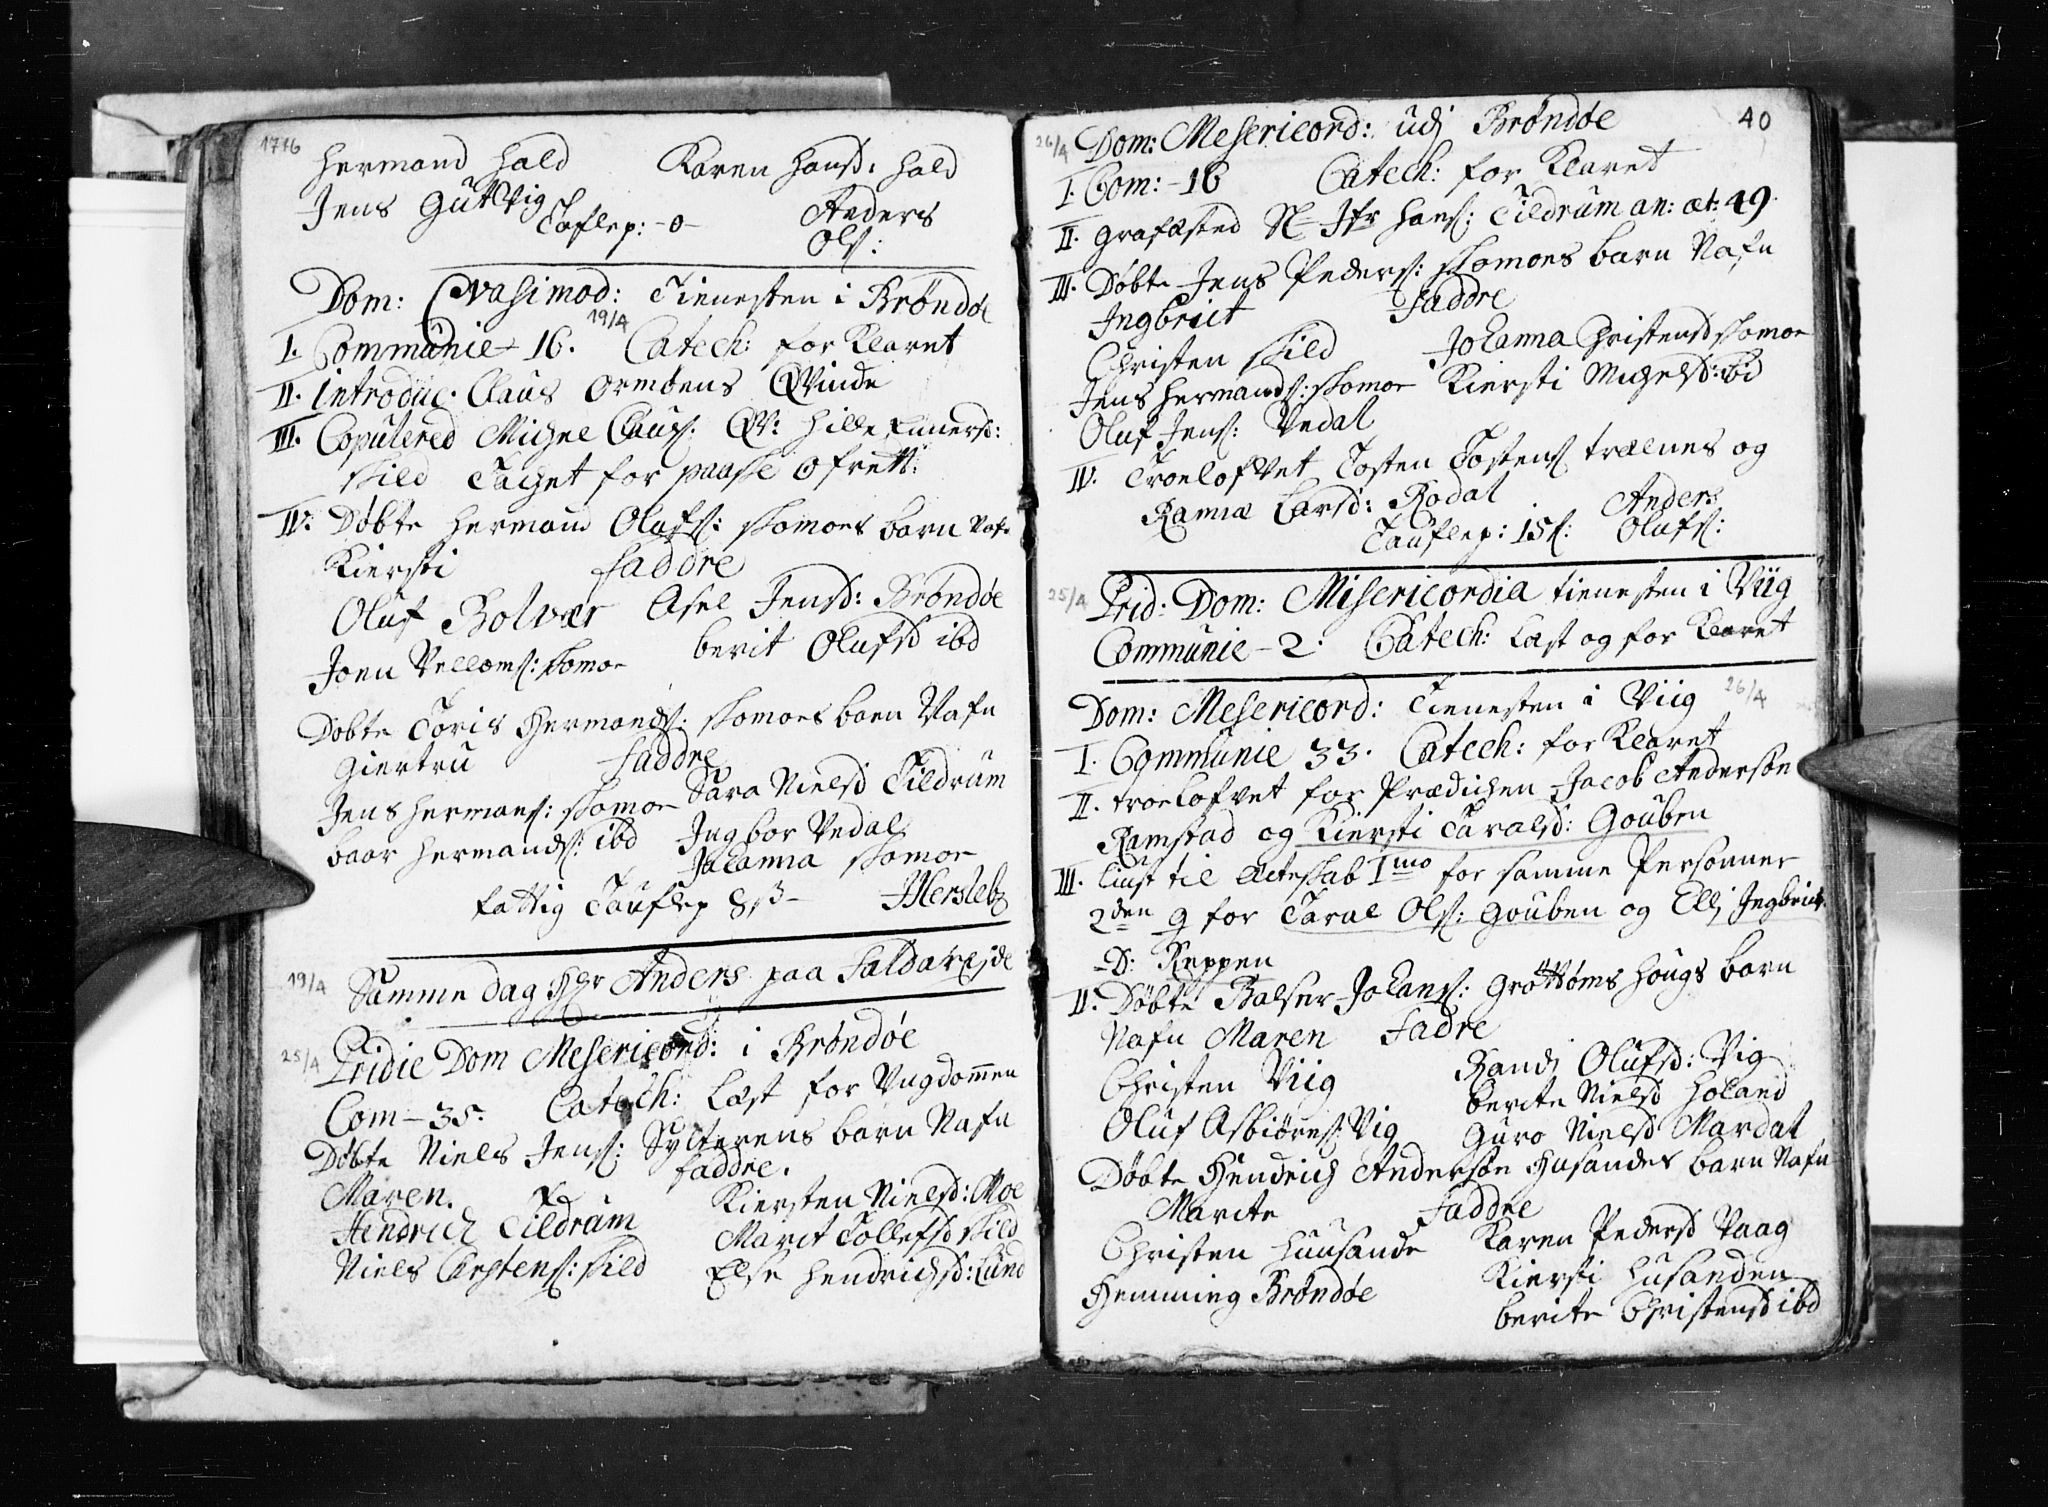 1716
Hermand Hald Karen Hansd: Hald
Jens Gutvig
Taflep: -0- Anders
Ols:
Dom: Qvasimod: Tienesten i Brøndøe
19/4
I. Communie 16. Catech: forklaret
II. introduc. Claus Ormøens Qvinde
III. Copulered Michel Claus: Q: Hille Einersd:
Skild Tachet for paaske ofret:
IV. Døbte Hermand Olufs: Skomoes barn Nafn
Kiersti Faddre
Oluf Bolvær Asel Jensd: Brøndøe
Joen Velloms: Skomoe berit Olufsd ibd
Døbte Toris Hermands: Skomoes barn Nafn
Giertru Faddre
Jens Hermans: Skomoe Sara Nielsd Tildrum
baar Hermands: ibd Ingbor Vedal
Johanna Skomoe
fattig Tauflep 8ß - Hersleb
19/4 Samme dag Hr Anders paa
25/4 Pridie Dom Mesericord: i Brøndøe
Com - 35. Catech: Læst for Ungdommen
Døbte Niels Jens: Sylterens barn Nafn
Maren. Faddre.
Hendrich Tildrum Kiersten Nielsd: Moe
Niels Carstens: Skild Marit Tollefsd Skild
Else Hendrichsd: Lund
40
26/4 Dom: Mesericord: udj Brøndøe
I. Com: -16 Catech: forklaret
II. Grafæsted Hans: Tildrum an: æt: 49.
III. Døbte Jens Peders: Skomoes barn Nafn
Ingbrict Faddre
Christen Skild Johanna Christensd Skomoe
Jens Hermands: Skomoe Kiersti Michelsd: ibd
Oluf Jens: Vedal
IV. Troelofvet Tosten Tostens trælnes og
Ranna Larsd: Rodal Anders
Tauflep: 15ß: Olufs:
25/4 Prid: Dom: Misericordia tienesten i Viig
Communie - 2. Catech: Læst og forklaret
Dom: Mesericord: Tienesten i Viig 26/4
I. Communie 33. Catech: forklaret
II. troelofvet for Prædichen Jacob Andersøn
Ramstad og Kiersti Taralsd: Gouben
III. Liust til Ecteskab Imo for samme Personner
2den g for Taral Ols: Gouben og Elli Ingbricts
-D: Reppen
II. Døbte Balser Johans: Grøttøms Hougs barn
Nafn Maren Fadre
Christen Viig Randi Olufsd: Vig
Oluf Asbiørns: Vig berite Nielsd Holand
Guro Nielsd Mardal
Døbte Hendrich Andersøn Husandes barn Nafn
Marite Faddre
Christen Huusande Karen Pedersd Vaag
Hemming Brøndøe Kiersti Husanden
berite Christensd ibd